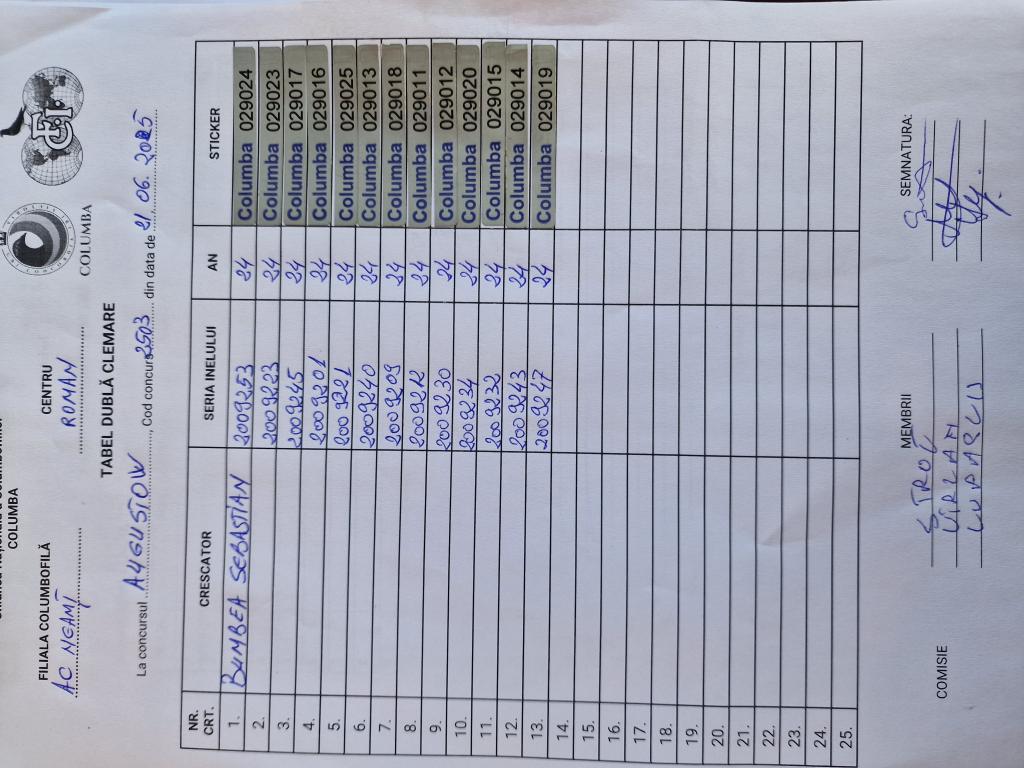 COLUMBA
FILIALA COLUMBOFILĂ CENTRU
AC NEAMȚ ROMAN
COLUMBA
TABEL DUBLĂ CLEMARE
La concursul AUGUSTOW, Cod concurs 2503 din data de 21.06.2025
NR. CRT. CRESCATOR SERIA INELULUI AN STICKER
1. BUMBEA SEBASTIAN 2009253 24 Columba 029024
2. 2009223 24 Columba 029023
3. 2009245 24 Columba 029017
4. 2009201 24 Columba 029016
5. 2009221 24 Columba 029025
6. 2009240 24 Columba 029013
7. 2009209 24 Columba 029018
8. 2009212 24 Columba 029011
9. 2009230 24 Columba 029012
10. 2009234 24 Columba 029020
11. 2009232 24 Columba 029015
12. 2009243 24 Columba 029014
13. 2009247 24 Columba 029019
14.
15.
16.
17.
18.
19.
20.
21.
22.
23.
24.
25.
COMISIE MEMBRII SEMNATURA:
VÎRLAN